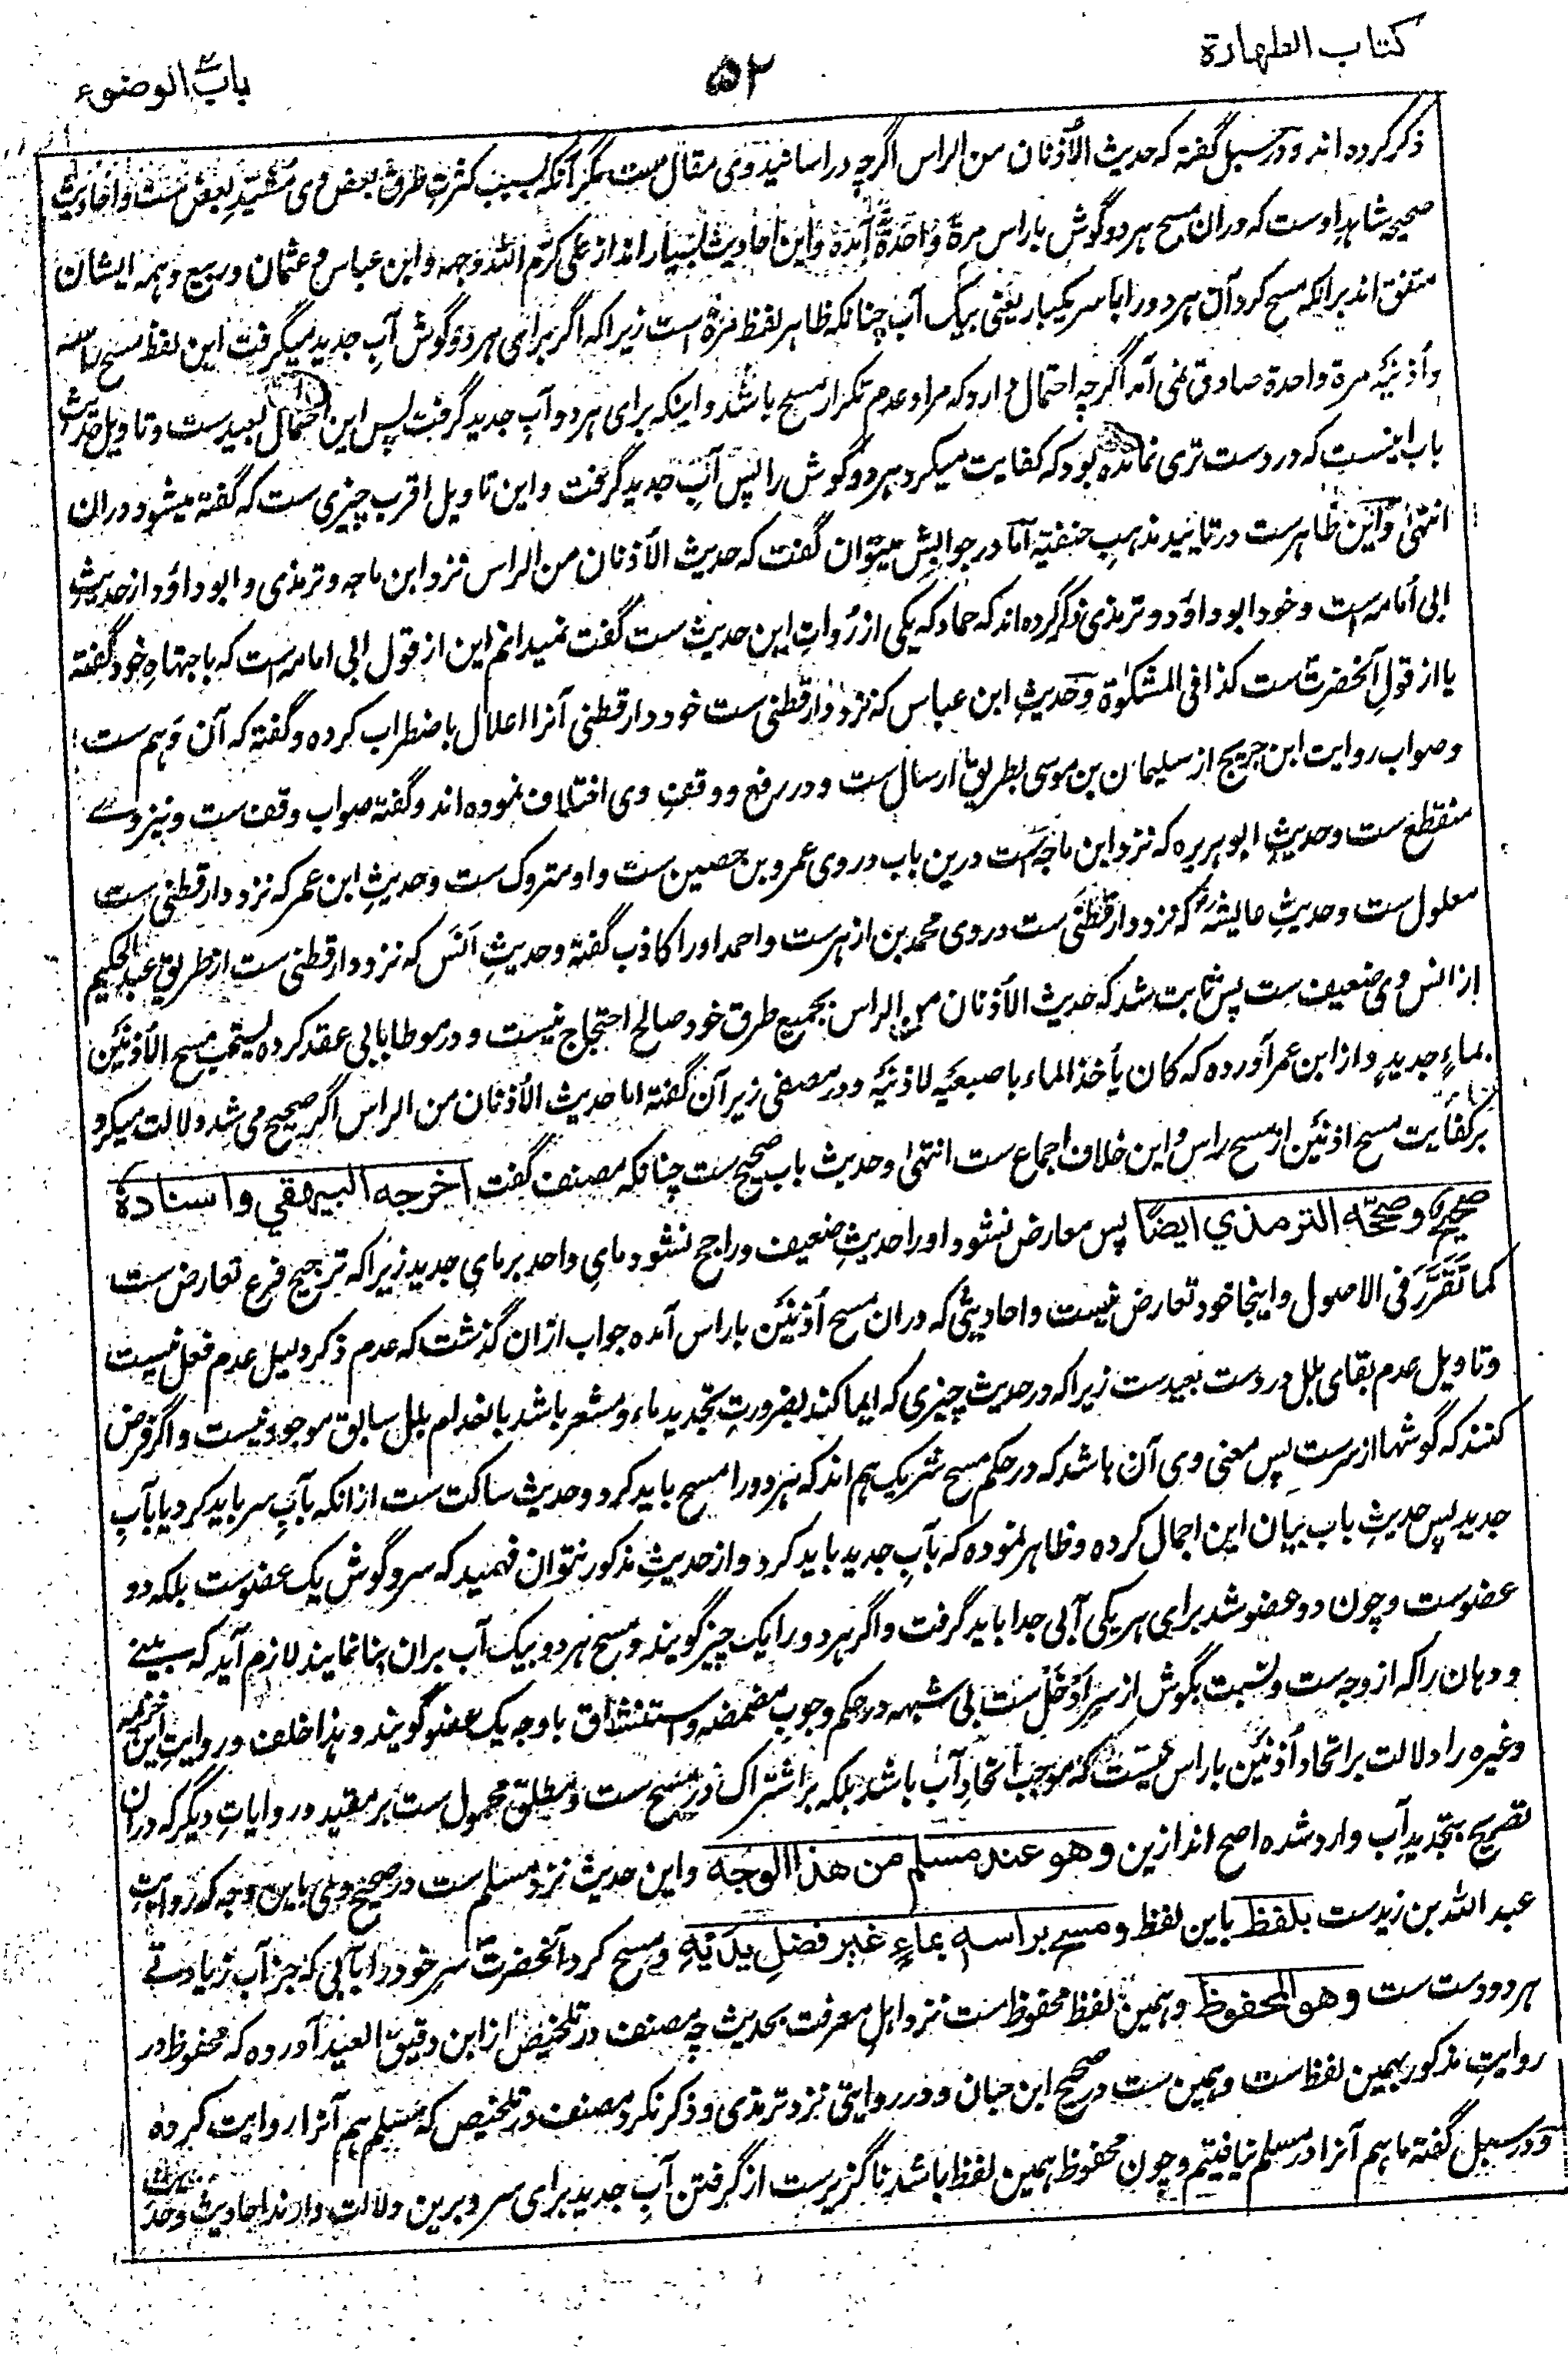 کتاب الطهارة
۵۲
باب الوضوء
ذکر کرده اند و در سبل گفته که حدیث الأذنان من الراس اگرچه در اسانید وی مقال ست مگر آنکه بسبب کثرت طرق بعض وی مشیّد بعض ست و احادیث
صحیحه شاهد اوست که دران مسح هر دو گوش باراس مرةً واحدةً آمده و این احادیث بسیار اند از علی کرّم اللّه وجهه و ابن عباس و عثمان و ربیع و همه ایشان
متفق اند برانکه مسح کرد آن هر دو را با سر یکبار یعنی بیک آب چنانکه ظاهر لفظ مرةً است زیرا که اگر برای هر دو گوش آبِ جدید میگرفت این لفظ مسح راسه
و أذنیه مرة واحدة صادق نمی آمد اگرچه احتمال دارد که مراد عدم تکرار مسح باشد و اینکه برای هر دو آب جدید گرفت پس این احتمال بعید ست و تاویل حدیث
باب اینست که در دست تری نمانده بود که کفایت میکرد هر دو گوش را پس آب جدید گرفت و این تاویل اقرب چیزی ست که گفته میشود دران
انتهیٰ و این ظاهرست در تایید مذهبِ حنفیّه امّا در جوابش میتوان گفت که حدیث الأذنان من الراس نزد ابن ماجه و ترمذی و ابو داؤد از حدیثِ
ابی أمامه ست و خود ابو داؤد و ترمذی ذکر کرده اند که حماد که یکی از رُواتِ این حدیث ست گفت نمیدانم این از قول ابی امامه ست که باجتهادِ خود گفته
یا از قولِ آنحضرت ست کذا فی المشکوٰة و حدیثِ ابن عباس که نزد دارقطنی ست خود دارقطنی آنرا اعلال باضطراب کرده و گفته که آن وَهم ست
و صواب روایت ابن جریج از سلیمان بن موسی بطریق ارسال ست و در رفع و وقفِ وی اختلاف نموده اند و گفته صواب وقف ست و نیز وے
منقطع ست و حدیثِ ابو هریره که نزد ابن ماجه ست درین باب در وی عمرو بن حصین ست و او متروک ست و حدیثِ ابن عمر که نزد دارقطنی ست
معلول ست و حدیثِ عایشه که نزد دارقطنی ست در وی محمد بن ازهر ست و احمد او را کاذب گفته و حدیثِ انَس که نزد دارقطنی ست از طریق عبد الحکیم
از انس وی ضعیف ست پس ثابت شد که حدیث الأذنان من الراس بجمیع طرق خود صالح احتجاج نیست و در موطا بابی عقد کرده یستحب مسح الأذنین
بماءٍ جدیدٍ و از ابن عمر آورده که کان یأخذ الماء باصبعیه لاذنیه و در مصفی زیر آن گفته اما حدیث الأذنان من الراس اگر صحیح می شد دلالت میکرد
بر کفایت مسح اذنین از مسح راس و این خلاف اجماع ست انتهیٰ و حدیث باب صحیح ست چنانکه مصنف گفت اخرجه البیهقي واسناده
صحیح و صححه الترمذي ایضاً پس معارض نشود او را حدیثِ ضعیف و راجح نشود مایِ واحد بر مایِ جدید زیرا که ترجیح فرع تعارض ست
کما تَقَرَّرَ فی الاصول و اینجا خود تعارض نیست و احادیثی که دران مسح أذنین باراس آمده جواب ازان گذشت که عدم ذکر دلیل عدم فعل نیست
و تاویل عدم بقای بلل در دست بعیدست زیرا که در حدیث چیزی که ایما کند بضرورتِ تجدید ماء و مشعر باشد بانعدام بلل سابق موجود نیست و اگر فرض
کنند که گوشها از سرست پس معنی وی آن باشد که در حکم مسح شریک هم اند که هر دو را مسح باید کرد و حدیث ساکت ست ازانکه بآبِ سر باید کرد یا بآبِ
جدید پس حدیثِ باب بیان این اجمال کرده و ظاهر نموده که بآبِ جدید باید کرد و از حدیثِ مذکور نتوان فهمید که سر و گوش یک عضوست بلکه دو
عضوست و چون دو عضو شد برای هر یکی آبی جدا باید گرفت و اگر هر دو را یک چیز گویند و مسح هر دو بیک آب بران بنا نمایند لازم آید که بینے
و دهان را که از وجه ست و نسبت بگوش از سر أدخَل ست بی شبهه در حکم وجوبِ مضمضه و استنشاق با وجه یک عضو گویند و هذا خلف و روایتِ ابن خزیمه
و غیره را دلالت بر اتحاد أذنین باراس نیست که موجب اتحادِ آب باشد بلکه بر اشتراک در مسح ست و مطلق محمول ست بر مقید و روایاتِ دیگر که دران
تصریح بتجدیدِ آب وارد شده اصح اند ازین وهو عند مسلم من هذا الوجه و این حدیث نزد مسلم ست در صحیح وی باین وجه که روایتِ
عبد اللّٰه بن زیدست بلفظ باین لفظ ومسح براسه بماءٍ غیر فضلِ یدَیْهِ و مسح کرد آنحضرت سرِ خود را بآبی که جز آب زیادتے
هر دو دست ست وهو المحفوظ و همین لفظ محفوظ ست نزد اهلِ معرفت بحدیث چه مصنف در تلخیص از ابن دقیق العید آورده که محفوظ در
روایتِ مذکور بهمین لفظ ست و همین ست در صحیح ابن حبان و در روایتی نزد ترمذی و ذکر نکرد مصنف در تلخیص که مسلم هم آنرا روایت کرده
و در سبل گفته ما هم آنرا در مسلم نیافتیم و چون محفوظ همین لفظ باشد ناگزیرست از گرفتن آبِ جدید برای سر و برین دلالت دارند احادیث وحدَت